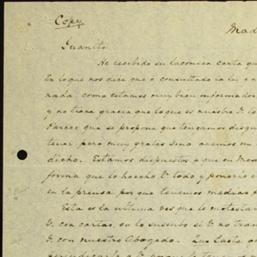 Copy
Mad
Juanito
He recibido su laconica carta qu
En la que nos dice que á consultado la ley á
nada, como estamos muy bien informados
y no tiene gracia que lo que es nuestro V. lo
Parece que se propone que tengamos disgu
tener pero muy graves sino hacemos un
dicho. Estamos dispuestos a que en Nues
forma que lo hecho V. todo y ponerlo e
en la prensa por que tenemos medios p
Esta es la ultima vez que le molestar
V. con cartas, en lo susesibo si V. no tran
V. con nuestro Abogado. Que hasta